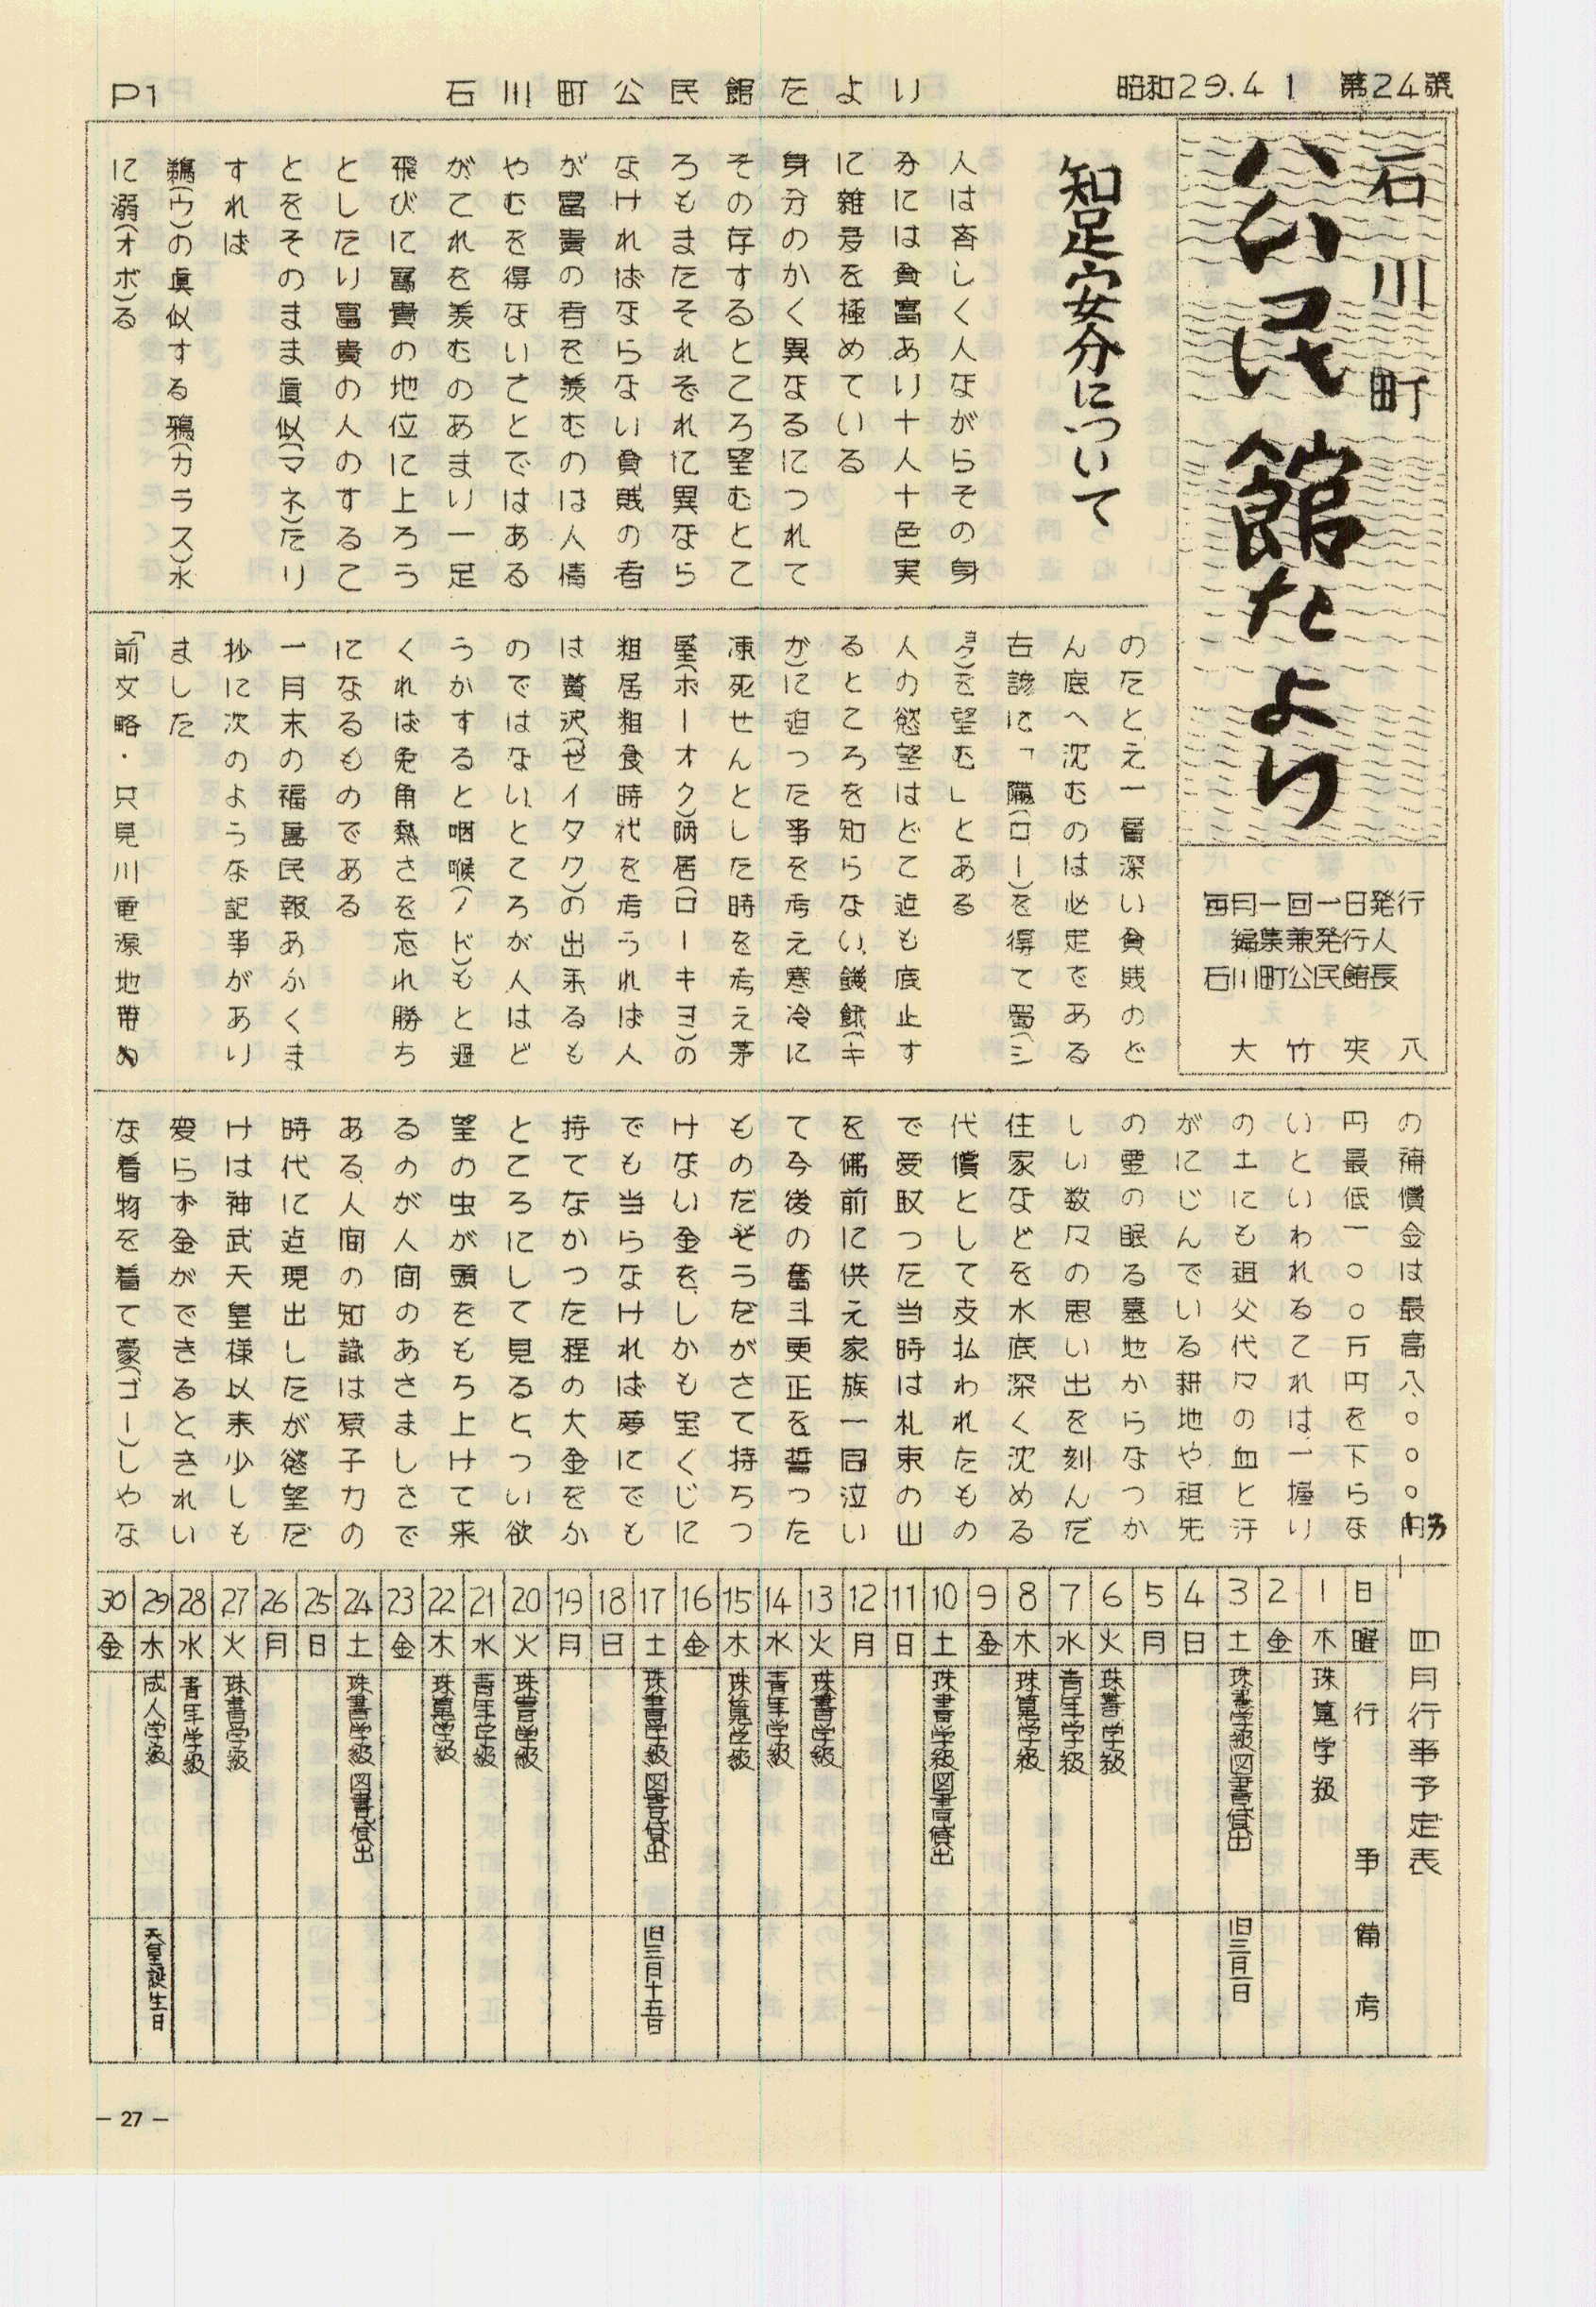 昭和29.4 1 第24号
石川町公民館たより
P1
石川町
公民館たより
毎月一回一日発行
編集兼発行人
石川町公民館長
大竹 八
知足安分について
人は斉しく人ながらその身
分には貧富あり十人十色実
に雑多を極めている
身分のかく異なるにつれて
その存するところ望むとこ
ろもまたそれぞれに異なら
なければならない貧賎の者
が富貴の者を羨むのは人情
やむを得ないことではある
がこれを羨むのあまり一足
飛びに富貴の地位に上ろう
としたり富貴の人のするこ
とをそのまま眞似(マネ)たり
すれば
鵜(ウ)の眞似する鴉(カラス)水
に溺(オボ)る
のたとえ一層深い貧賎のど
ん底へ沈むのは必定である
古諺に「隴(ロー)を得て蜀(シ
ョク)を望む」とある
人の慾望はどこ迠も底止す
るところを知らない、饑餓(キ
ガ)に迫った事を考え寒冷に
凍死せんとした時を考え茅
屋(ホーオク)陋居(ローキヨ)の
粗居粗食時代を考うれば人
は贅沢(ゼイタク)の出来るも
のではない、ところが人はど
うかすると咽喉(ノド)もと過
くれば兎角熱さを忘れ勝ち
になるものである
一月末の福島民報あかくま
抄に次のような記事があり
ました
「前文略・只見川電源地帯の
の補償金は最高八、〇〇〇万円
円最低一〇〇万円を下らな
いといわれるこれは一握り
の土にも祖父代々の血と汗
がにじんでいる耕地や祖先
の霊の眠る墓地からなつか
しい数々の思い出を刻んだ
住家などを水底深く沈める
代償として支払われたもの
で受取った当時は札束の山
を佛前に供え家族一同泣い
て今後の奮斗更正を誓った
ものだそうだがさて持ちつ
けない金を、しかも宝くじに
でも当らなければ夢にでも
持てなかつた程の大金をか
ところにして見ると、つい欲
望の虫が頭をもち上けて来
るのが人間のあさましさで
ある、人間の知識は原子力の
時代に迠現出したが慾望だ
けは神武天皇様以来少しも
変らず金ができると、きれい
な着物を着て豪(ゴー)しやな
四月行事予定表
日 曜 行事 備考
1 木 珠算学級
2 金
3 土 珠書学級 図書貸出 旧三月一日
4 日
5 月
6 火 珠書学級
7 水 青年学級
8 木 珠算学級
9 金
10 土 珠書学級 図書貸出
11 日
12 月
13 火 珠書学級
14 水 青年学級
15 木 珠算学級
16 金
17 土 珠書学級 図書貸出 旧三月十五日
18 日
19 月
20 火 珠書学級
21 水 青年学級
22 木 珠算学級
23 金
24 土 珠書学級 図書貸出
25 日
26 月
27 火 珠書学級
28 水 青年学級
29 木 成人学級 天皇誕生日
30 金
— 27 —